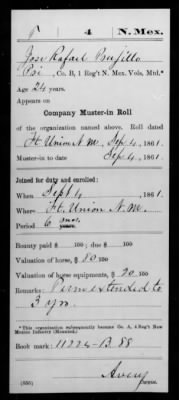 4 N. Mex.
Jose Rafael Trujillo
Co. B, 1 Reg't N. Mex. Vols, Mtd.*
Age 24 years.
Appears on
Company Muster-in Roll
of the organization named above. Roll dated
Ft. Union N.M. Sep 4, 1861.
Muster-in to date Sep 4, 1861.
Joined for duty and enrolled:
When Sept 4, 1861.
Where Ft. Union N.M.
Period 6 mos. years.
Bounty paid $ 100; due $ 100
Valuation of horse, $ 80 100
Valuation of horse equipments, $ 20 100
Remarks: Term extended to
3 yrs.
*This organization subsequently became Co. A, 4 Reg't New
Mexico Infantry (Mounted.)
Book mark: 11224-B-88
Avery
(356) Copyist.